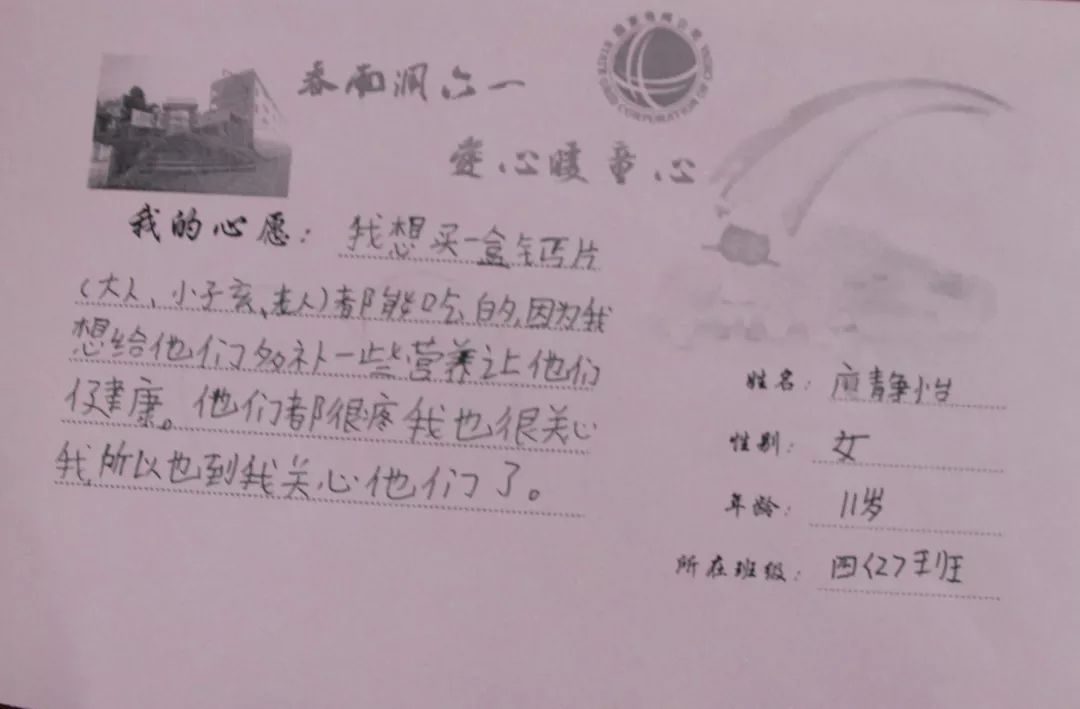 春雨润六一
国家电网公司
STATE GRID CORPORATION OF CHINA
爱心暖童心
我的心愿：我想买一盒钙片
（大人、小子亥、老人）都能吃的,因为我
想给他们多补一些营养让他们
健康。他们都很疼我也很关心
我,所以也到我关心他们了。
姓名：廖静怡
性别：女
年龄：11岁
所在班级：四〈2〉班